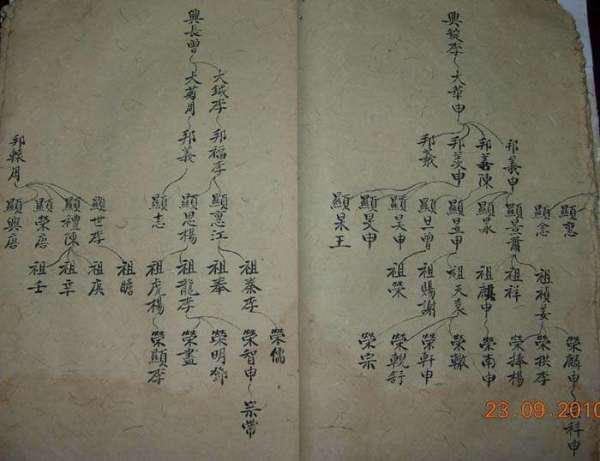 興綻李
大華申
邦義申
邦善陳
邦羙申
邦義
顯惠
顯念
顯景蕭
顯永
顯昱申
顯旦曾
顯昊申
顯旻申
顯杲王
祖禎姜
祖祥
祖麒申
祖天袁
祖賜謝
祖榮
榮麟申
科申
榮拱李
榮捧楊
榮南申
榮轍
榮軒申
榮輗舒
榮宗
興長曾
大鉞李
大蒭周
邦福李
邦義
顯惠江
顯思楊
顯志
祖泰李
祖奉
祖龍李
祖虎楊
榮儒
榮智申
宗常
榮明鄧
榮晝
榮顯李
邦縣周
顯世李
顯禮陳
顯榮唐
顯興唐
祖瞻
祖庚
祖辛
祖壬
23 09 2010